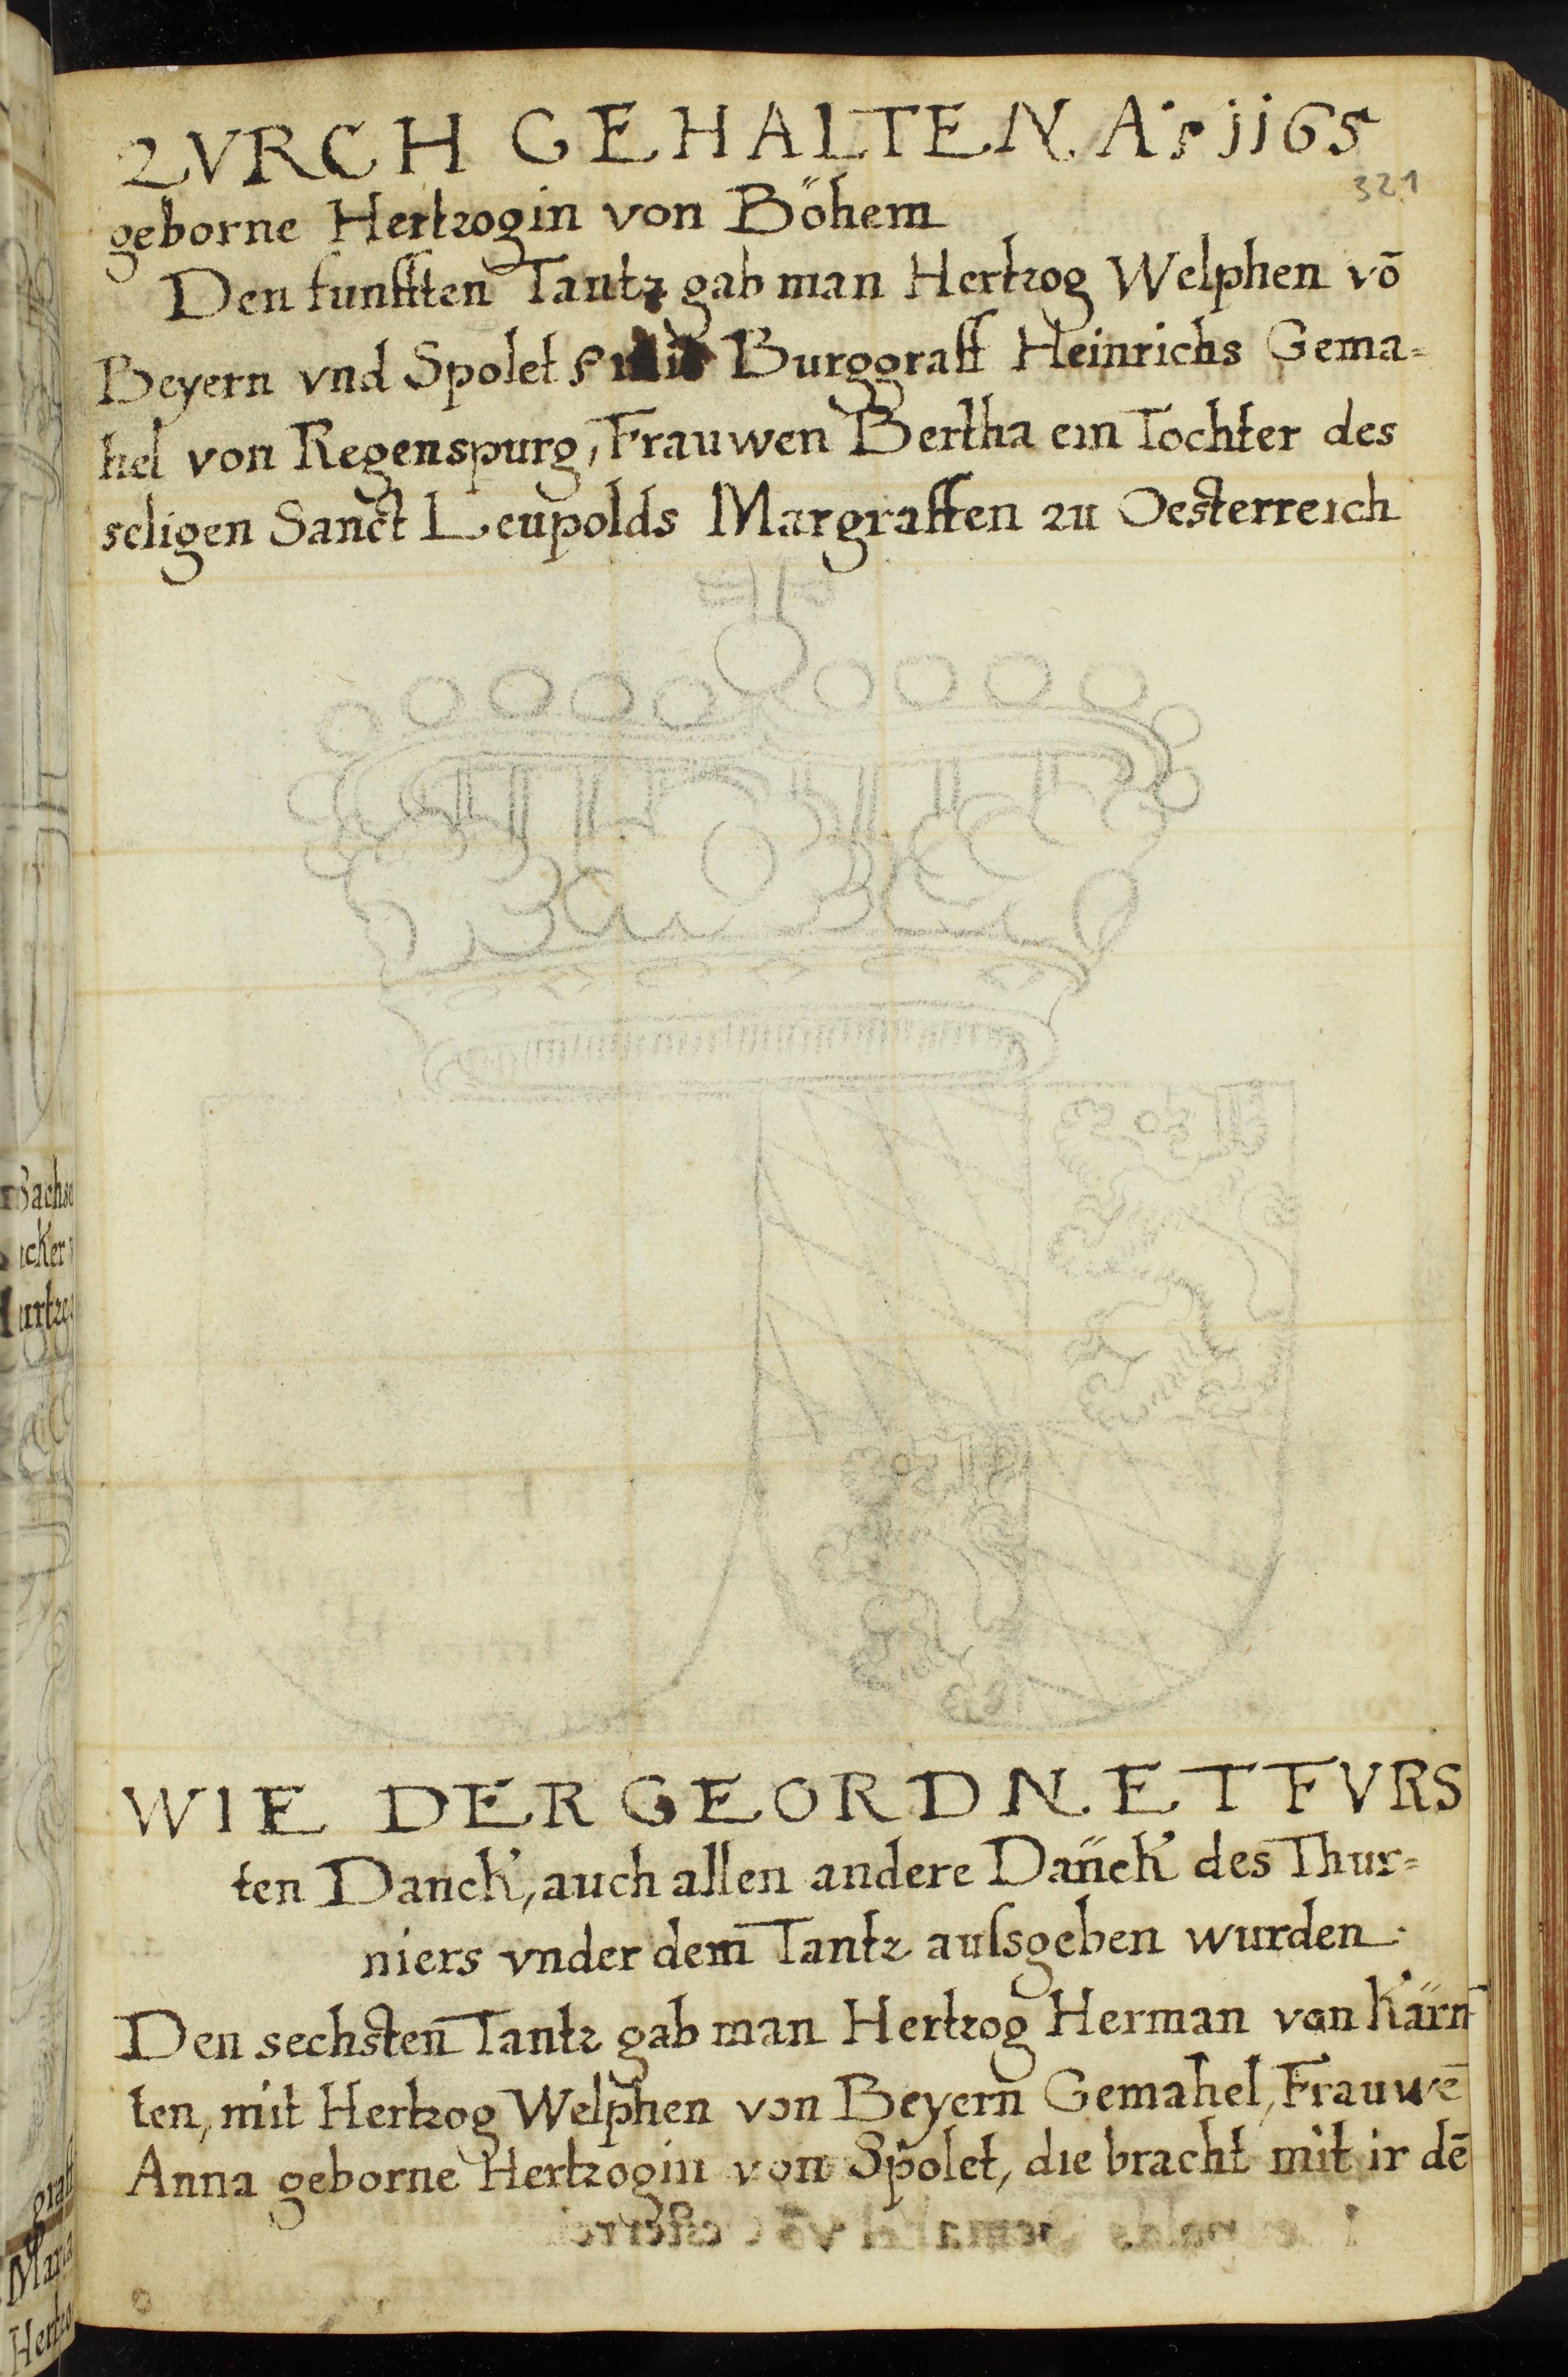 ZVRCH GEHALTEN. A° 1165
321
geborne Hertzogin von Böhem
Den funfften Tantz gab man Hertzog Welphen võ
Beyern vnd Spolet mit Burggraff Heinrichs Gema=
hel von Regenspurg, Frauwen Bertha ein Tochter des
seligen Sanct Leupolds Margraffen zu Oesterreich
WIE DER GEORDNET FVRS
ten Danck, auch allen andere Dänck des Thur=
niers vnder dem Tantz ausgeben wurden.
Den sechsten Tantz gab man Hertzog Herman von Kärn
ten, mit Hertzog Welphen von Beyern Gemahel, Frauwē
Anna geborne Hertzogin von Spolet, die bracht mit ir dē